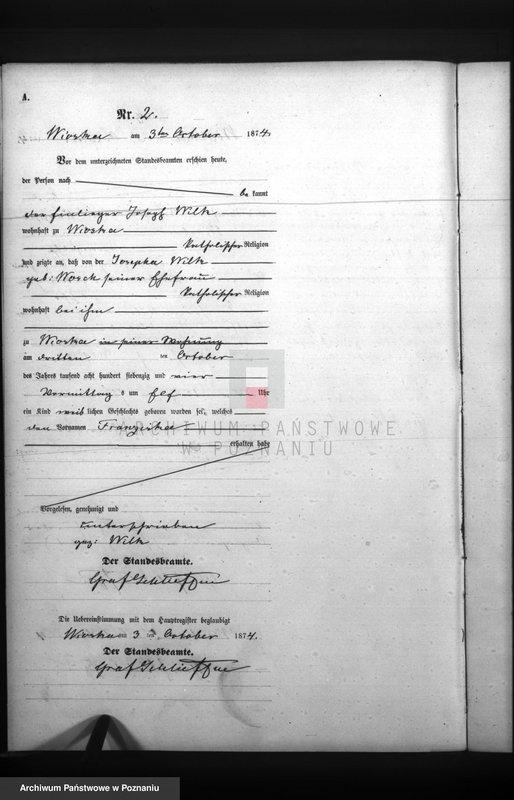 A.
Nr. 2.
Wioska am 3ten October 1874
Vor dem unterzeichneten Standesbeamten erschien heute,
der Person nach
be kannt
der Einlieger Joseph Wilk
wohnhaft zu Wioska
katholischer Religion
und zeigte an, daß von der Josepha Wilk
geb: seiner Ehefrau
katholischer Religion
wohnhaft bei ihm
zu Wioska in seiner Wohnung
am dritten ten October
des Jahres tausend acht hundert siebenzig und vier
Vormittag s um Elf Uhr
ein Kind weib lichen Geschlechts geboren worden sei, welches
den Vornamen Franziska
ARCHIWUM PAŃSTWOWE
W POZNANIU
erhalten habe
Vorgelesen, genehmigt und
unterschrieben
gez: Wilk
Der Standesbeamte.
Graf Schlieffen
Die Uebereinstimmung mit dem Hauptregister beglaubigt
Wioska am 3 ten October 1874.
Der Standesbeamte.
Graf Schlieffen
Archiwum Państwowe w Poznaniu